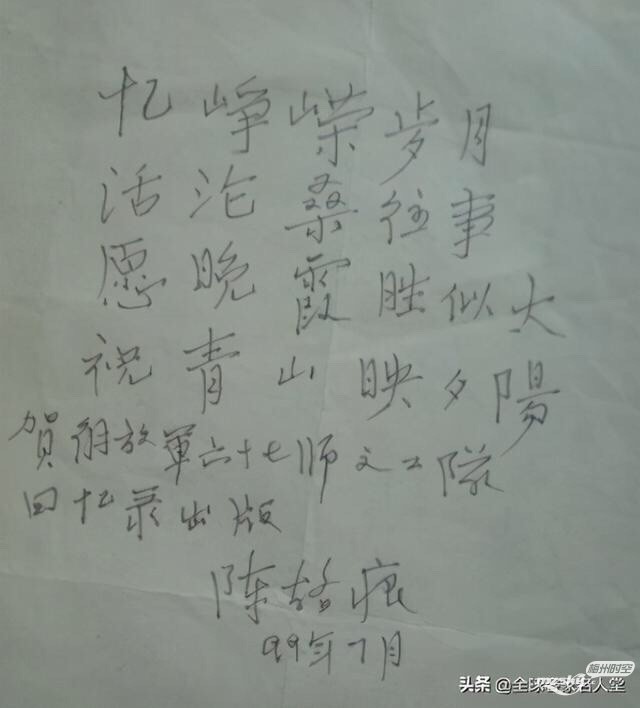 忆峥嵘岁月
话沧桑往事
愿晚霞胜似火
祝青山映夕陽
賀解放軍六十七师文工隊
回忆录出版
陈 痕
99年7月
梅州时空
头条 @全球客家名人堂